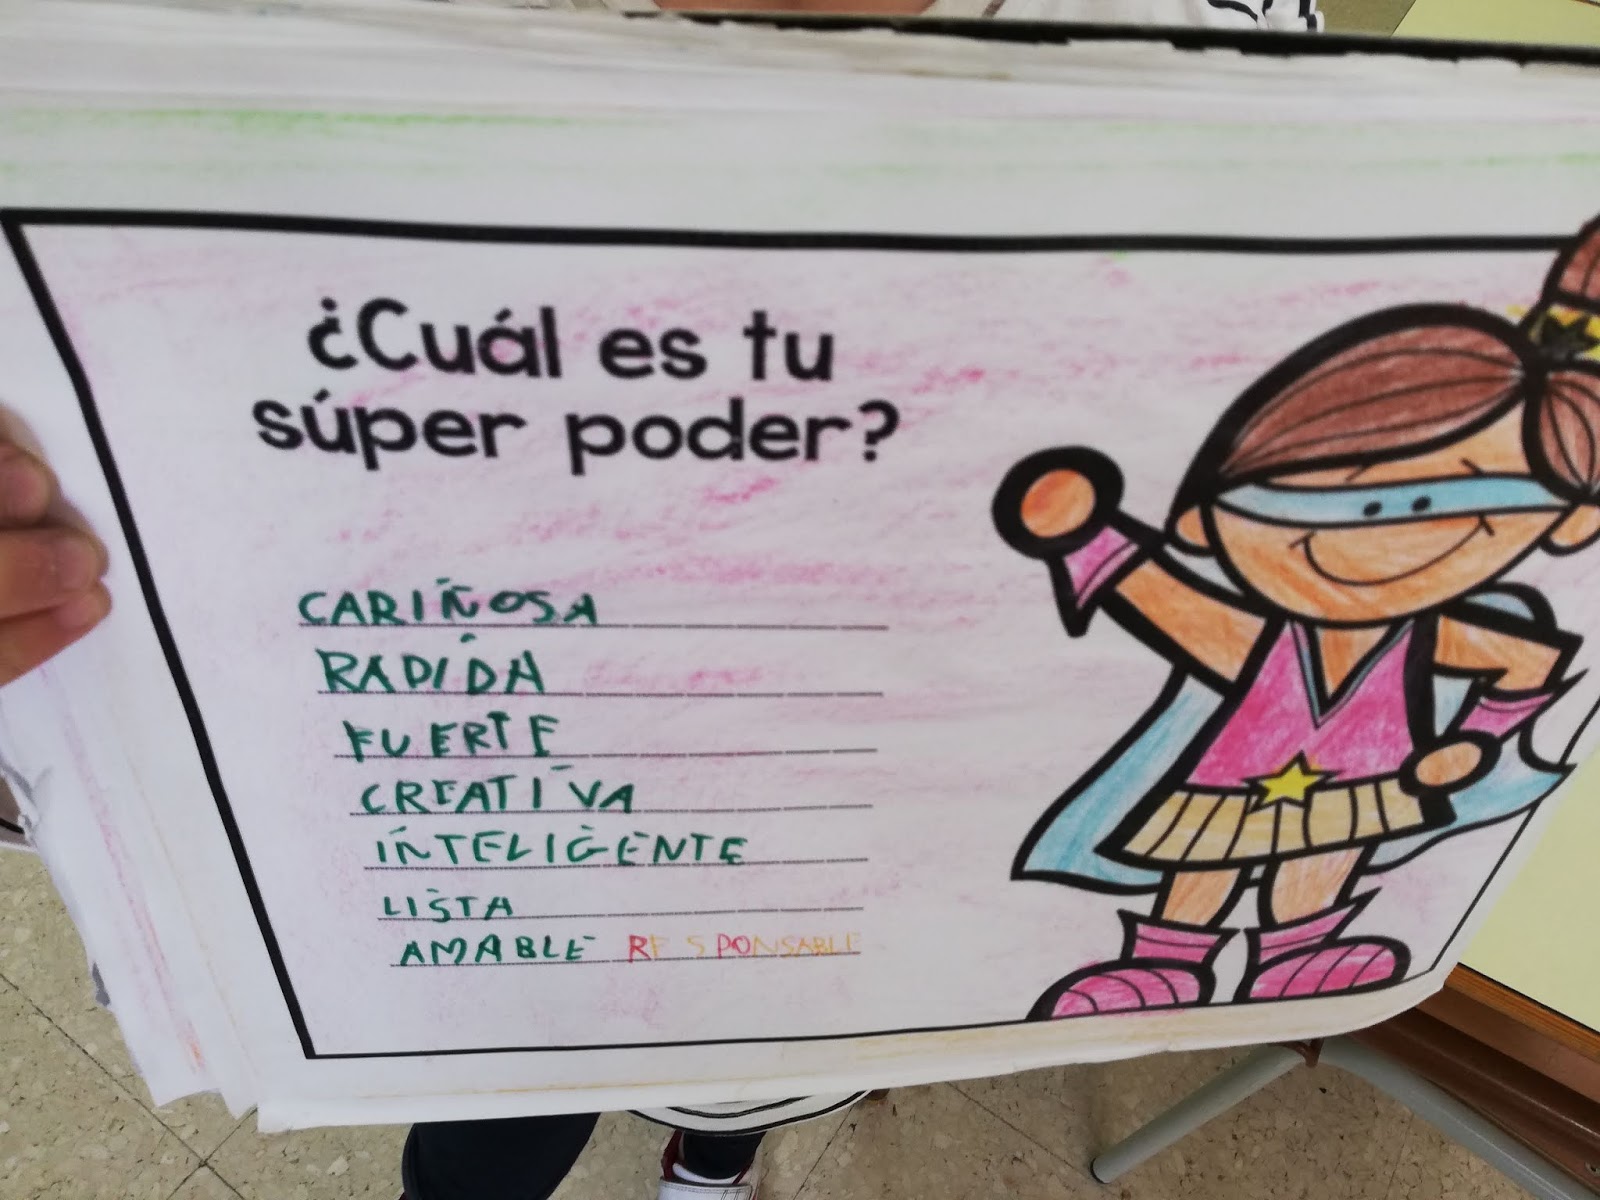 ¿Cuál es tu
súper poder?
CARIÑOSA
RADIDA
FUERTE
CREATIVA
INTELIGENTE
LISTA
AMABLE RESPONSABLE